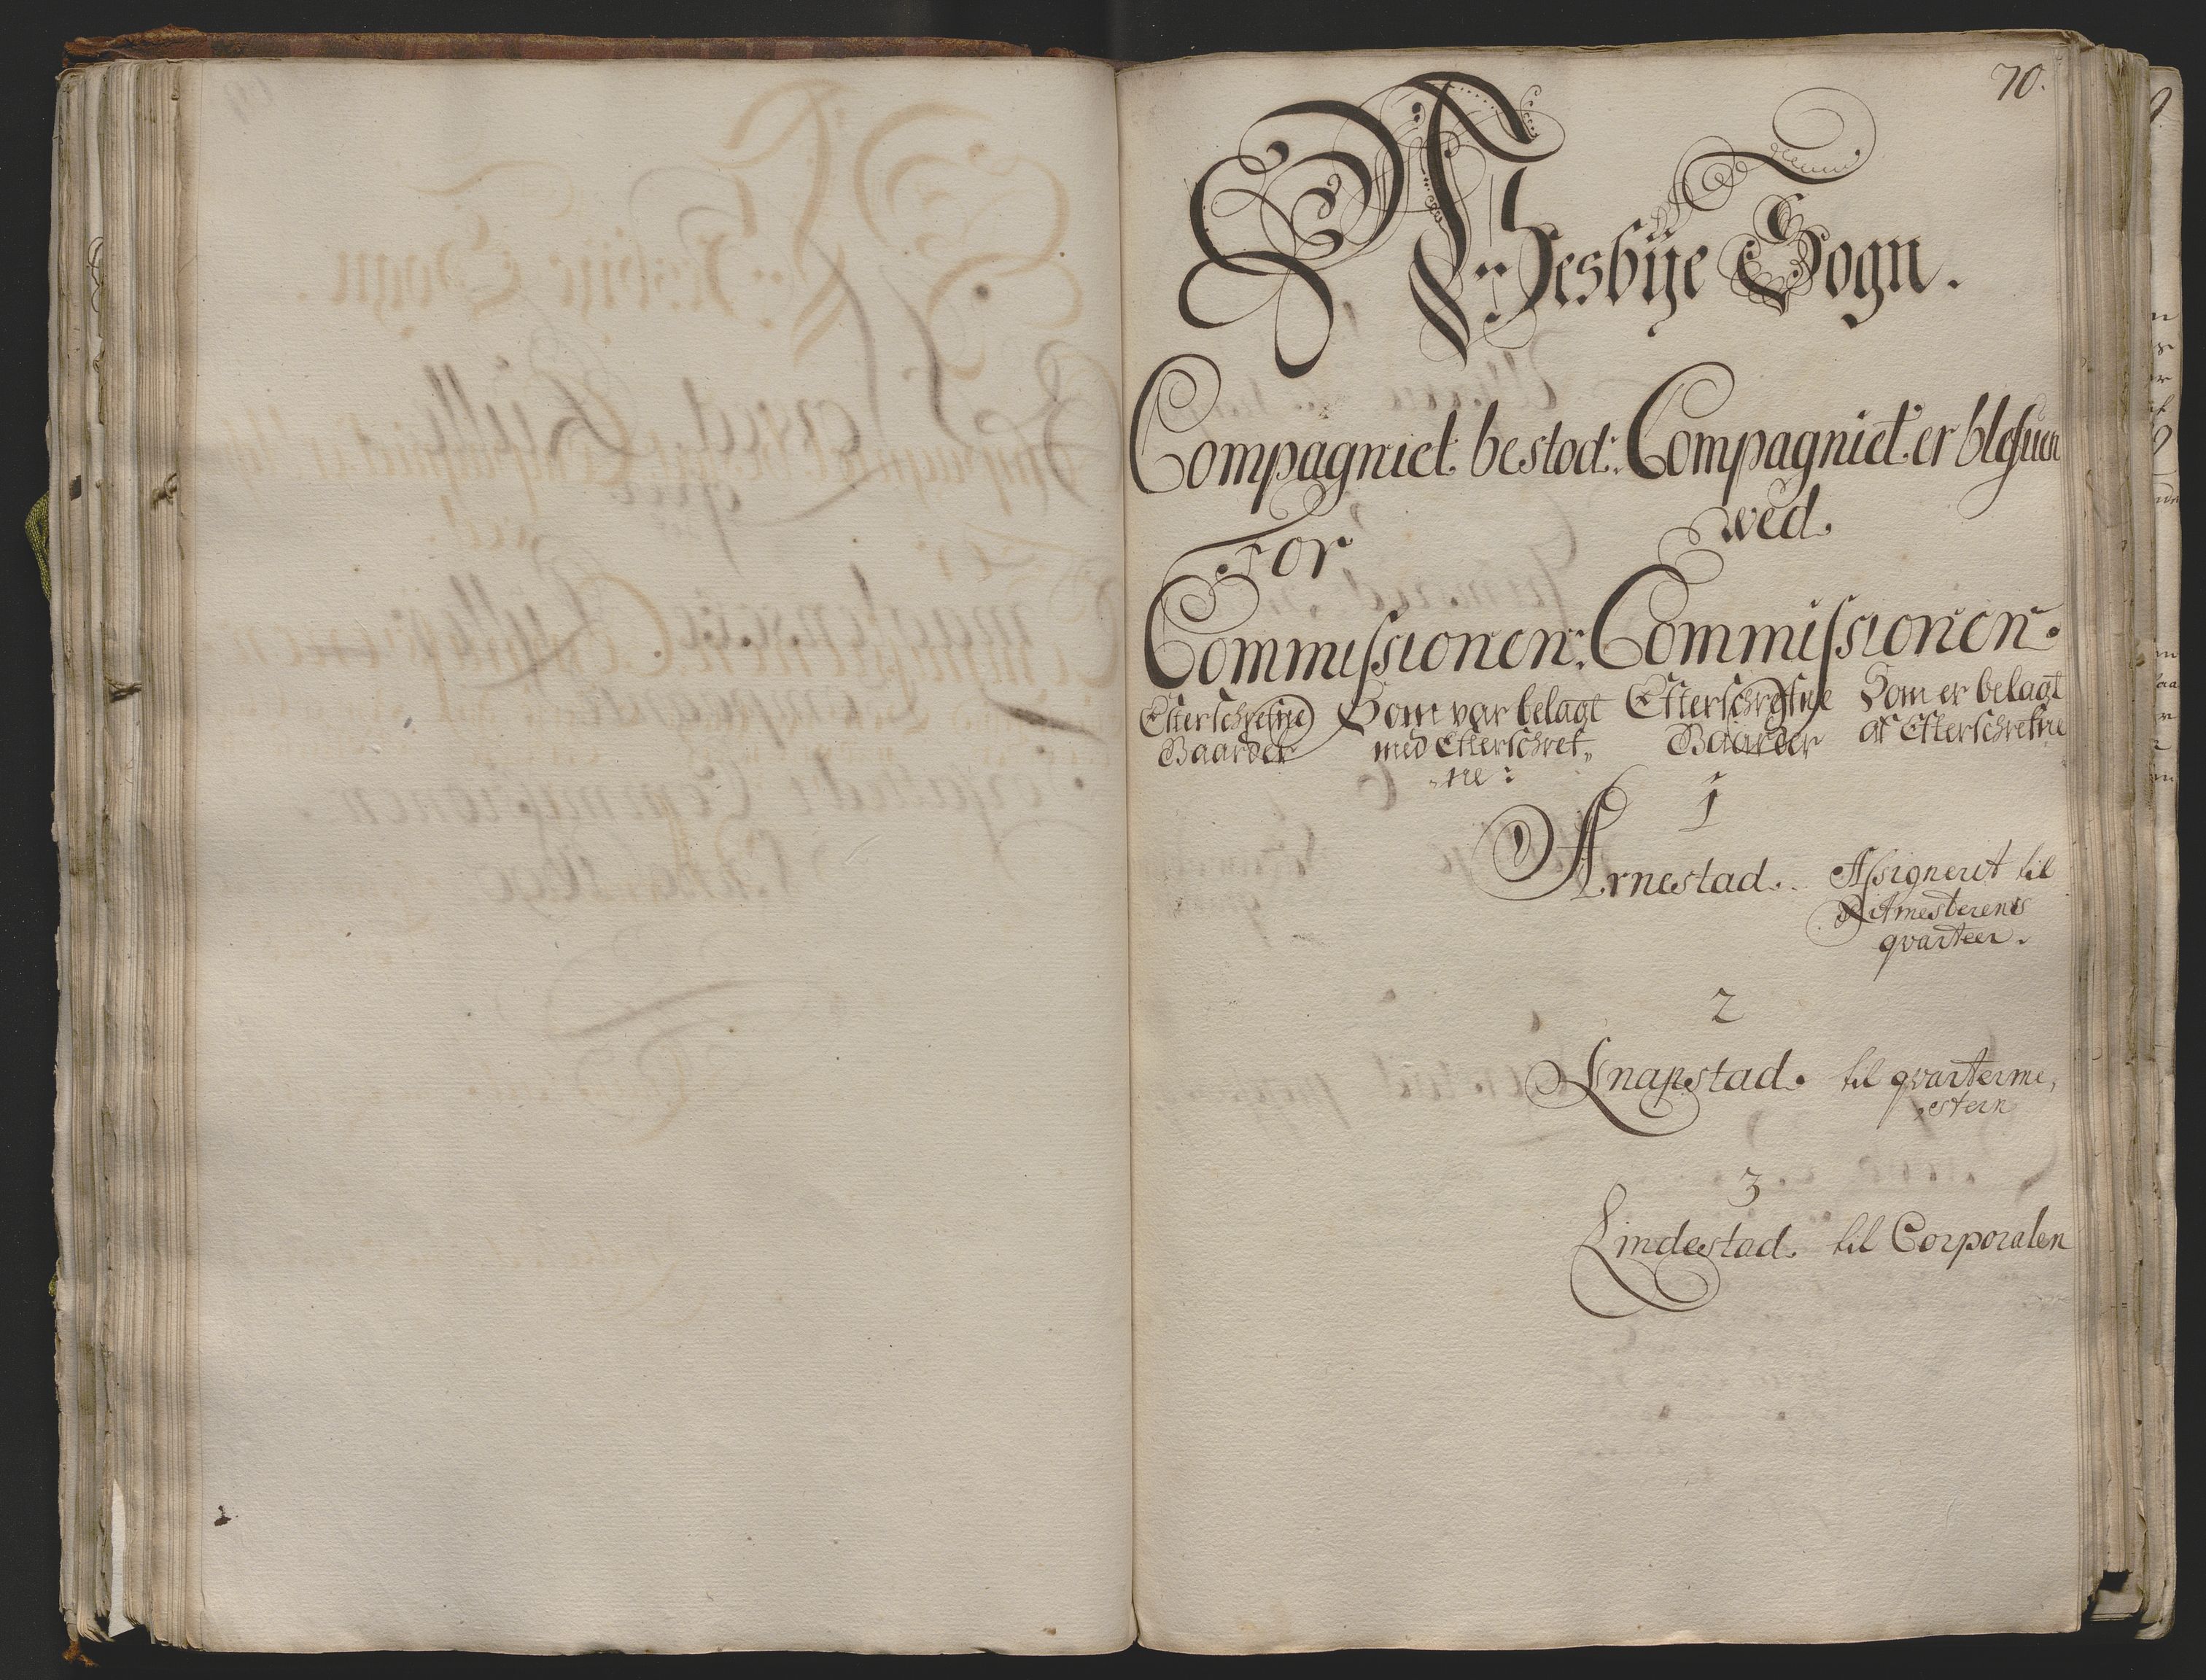 70.
Nesbÿe Sogn.
Compagniet bestod: Compagniet er blefuen
For
wed.
Commissionen: Commissionen.
Efterschrefne Gaarder
Som var belagt med Efterschref„
„ne:
Efterschrefne Gaarder
Som er belagt af Efterschrefne
1
Arnestad. Assignerit til
Ritmesterens
qvarteer.
2
Knapstad. til qvarterme„
„stern
3
Lindestad. til Corporalen